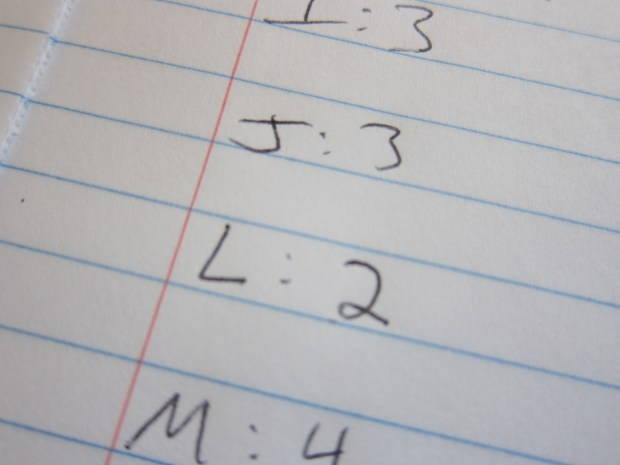 I:3
J:3
L:2
M:4